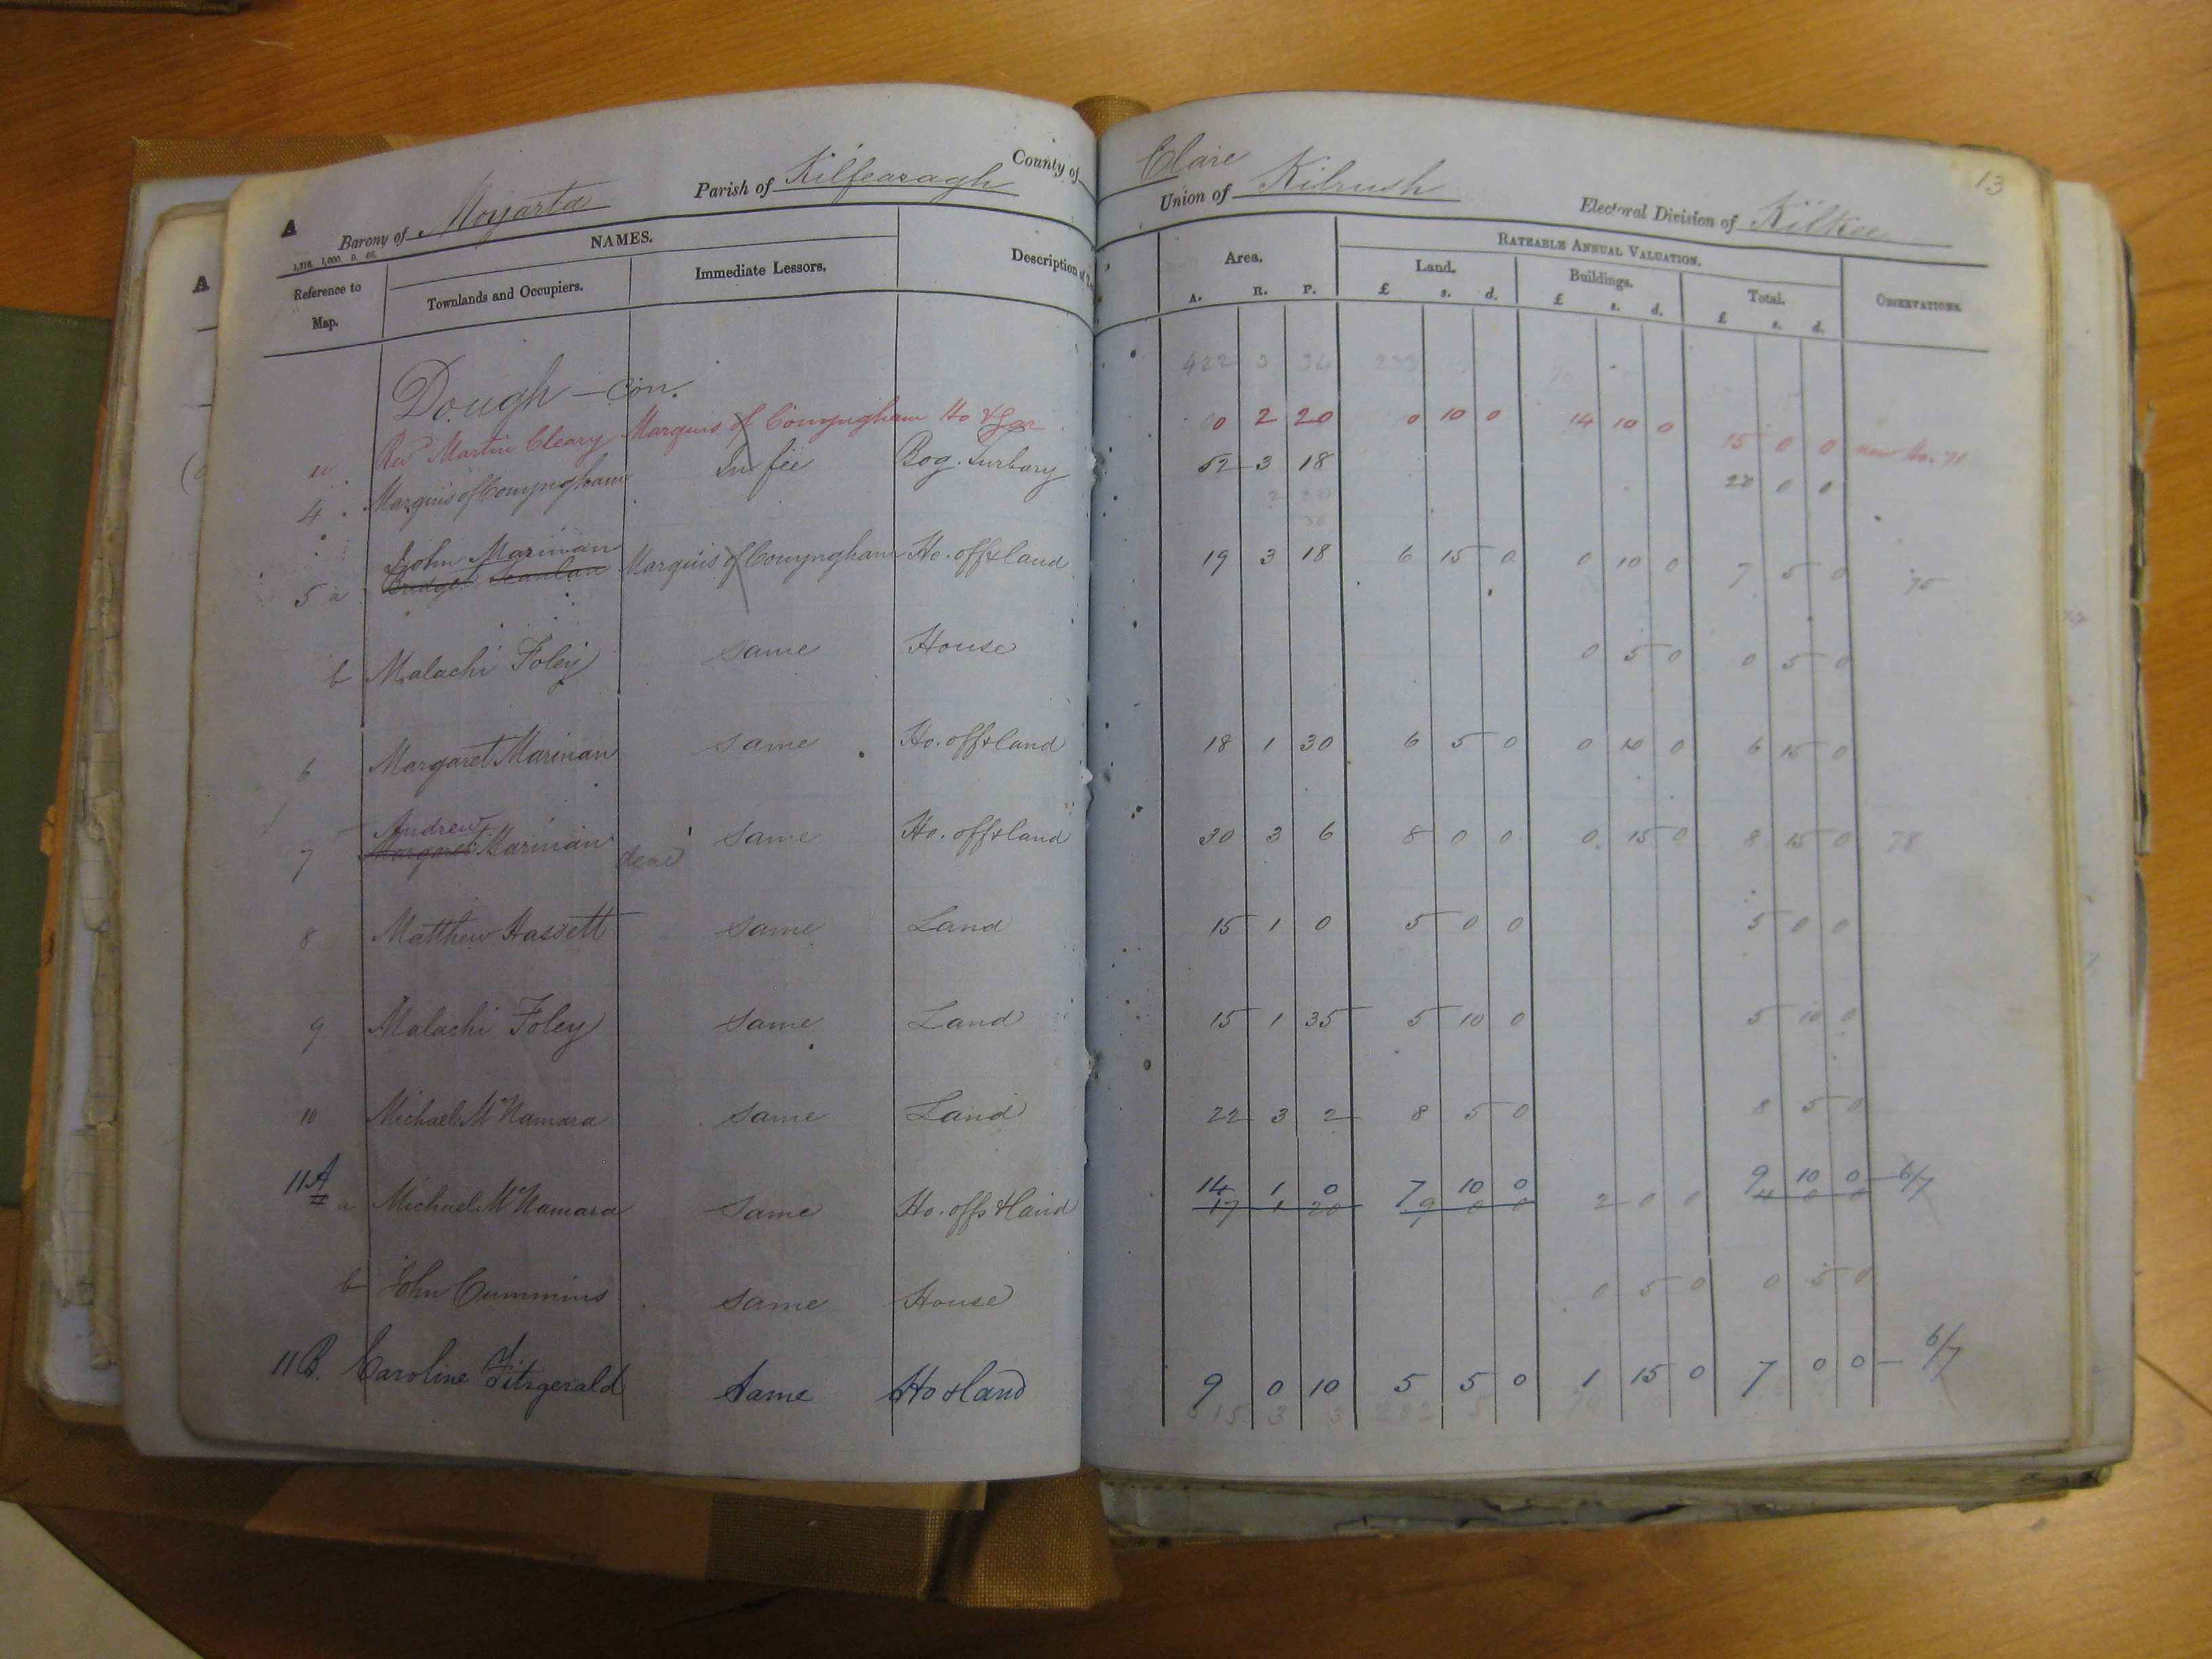 A
Barony of Moyarta Parish of Kilfearagh County of Clare Union of Kilrush Electoral Division of Kilkee 13
NAMES. RATEABLE ANNUAL VALUATION.
Reference to Map. Townlands and Occupiers. Immediate Lessors. Description of Area. Land. Buildings. Total. OBSERVATIONS.
A. R. P. £ s. d. £ s. d. £ s. d.
Dough - con. 422 3 34 233
Rev Martin Cleary Marquis of Conyngham Ho & gar 0 2 20 0 10 0 14 10 0 15 0 0 new Ho. 71
4 Marquis of Conyngham In fee Bog. Turbary 52 3 18 20 0 0
John Marinan
5 a Bridget Scanlan Marquis of Conyngham Ho. off & land 19 3 18 6 15 0 0 10 0 7 5 0 75
b Malachi Foley same House 0 5 0 0 5 0
6 Margaret Marinan same Ho. off & land 18 1 30 6 5 0 0 10 0 6 15 0
Andrew
7 Margaret Marinan dead same Ho. off & land 30 3 6 8 0 0 0 15 0 8 15 0 78
8 Matthew Hassett same Land 15 1 0 5 0 0 5 0 0
9 Malachi Foley same Land 15 1 35 5 10 0 5 10 0
10 Michael McNamara same Land 22 3 2 8 5 0 8 5 0
11A 14 1 0 7 10 0 9 10 0 6/7
a Michael McNamara same Ho. offs & land 17 1 20 9 0 0 2 0 0
b John Cummins same House 0 5 0 0 5 0
11B. Caroline Fitzgerald Same Ho & land 9 0 10 5 5 0 1 15 0 7 0 0 6/7